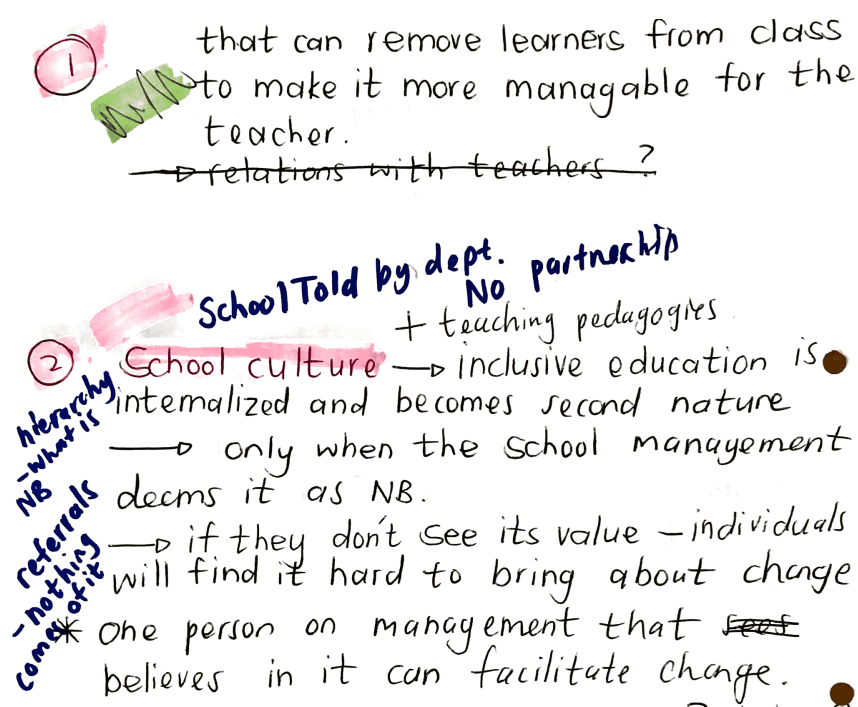 1
that can remove learners from class
to make it more managable for the
teacher.
→ relations with teachers ?
School Told by dept.
No partnership
+ teaching pedagogies
2 School culture → inclusive education is
internalized and becomes second nature
→ only when the school management
deems it as NB.
→ if they don't see its value - individuals
will find it hard to bring about change
* one person on management that sees
believes in it can facilitate change.
hierarchy
- what is
NB
referrals
- nothing
comes of it